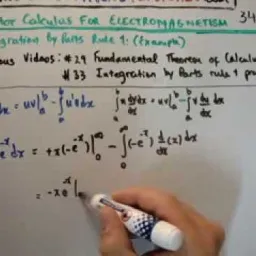 tor Calculus For Electromagnetism 34
gration by Parts Rule 1: (Example)
ous Videos: #29 Fundamental Theorem of Calculu
#33 Integration by Parts rule 1 pro
dx = uv|ₐᵇ - ∫ₐᵇ u'v dx ∫ₐᵇ u dv/dx dx = uv|ₐᵇ - ∫ₐᵇ v du/dx dx
e⁻ˣ dx = +x(-e⁻ˣ)|₀^∞ - ∫₀^∞ (-e⁻ˣ) d/dx (x) dx
= -xe⁻ˣ|